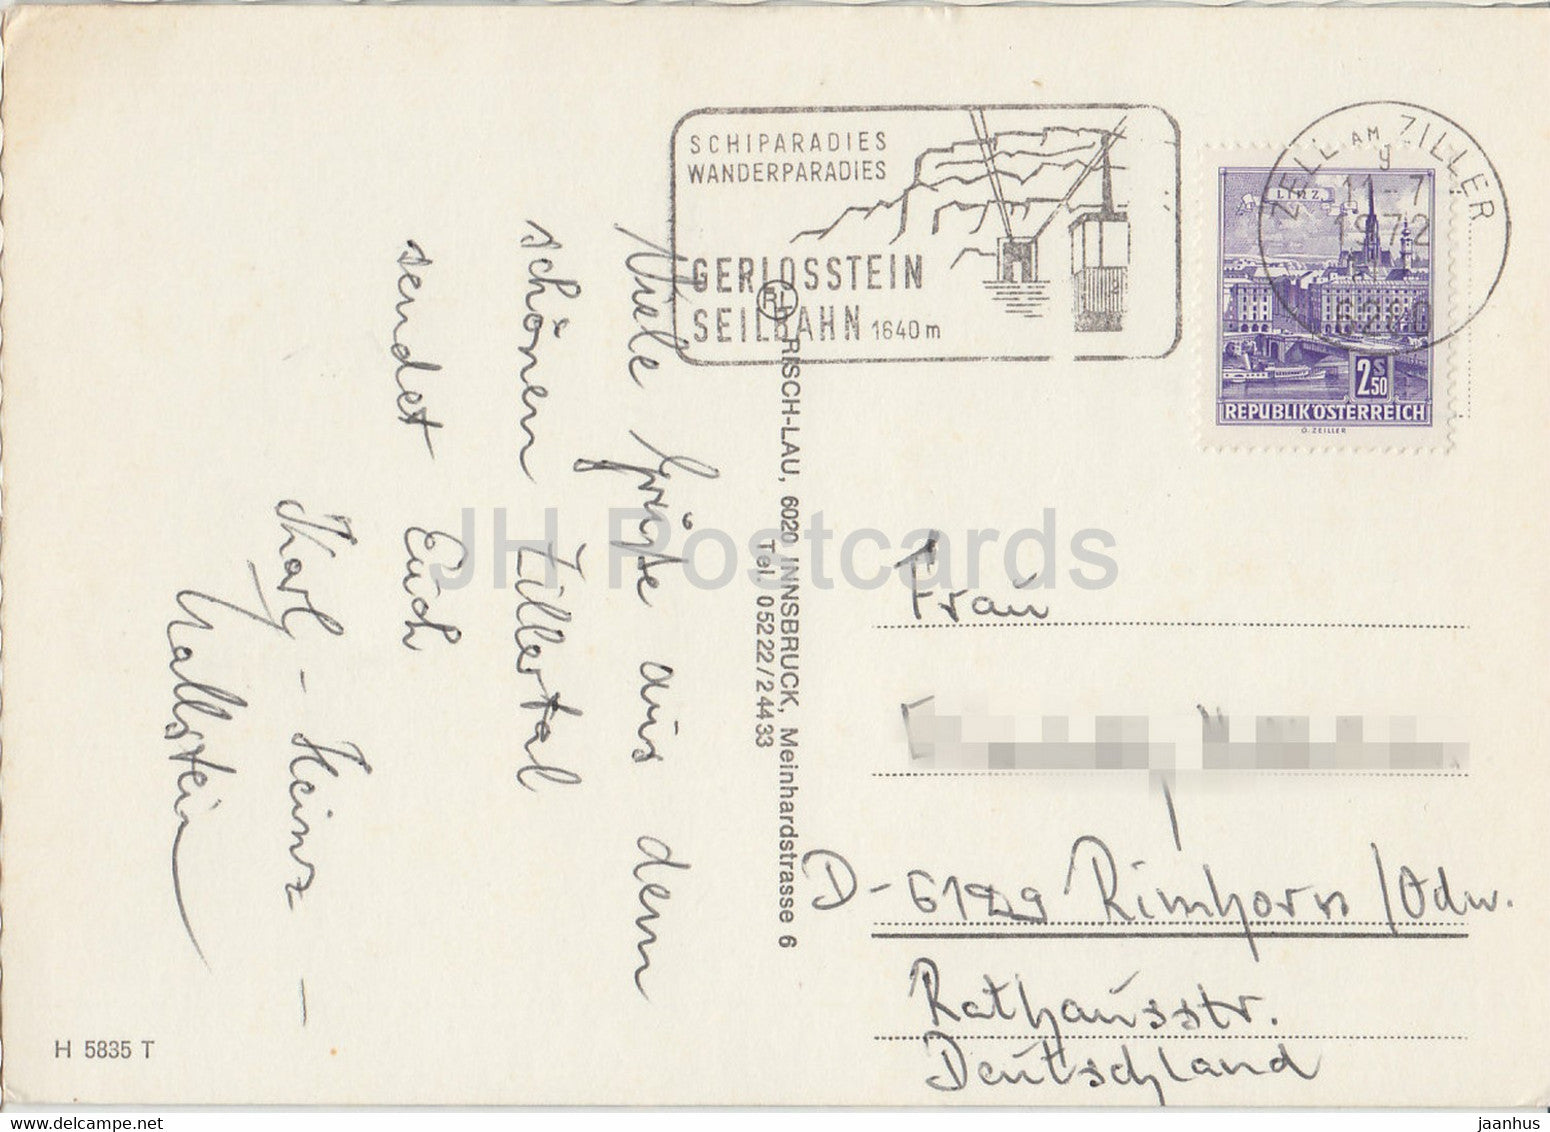 SCHIPARADIES
WANDERPARADIES
GERLOSSTEIN
SEILBAHN 1640 m
ZELL AM ZILLER
11-7
1972
6280
LINZ
2 S 50
REPUBLIK ÖSTERREICH
O. ZEILLER
Viele Grüße aus dem
schönen Zillertal
sendet Euch
Karl-Heinz-
RISCH-LAU, 6020 INNSBRUCK, Meinhardstrasse 6
Tel. 05222/24433
Frau
D-6129 Rimhorn/Odw.
Rathausstr.
Deutschland
H 5835 T
JH Postcards
www.delcampe.net
jaanhus